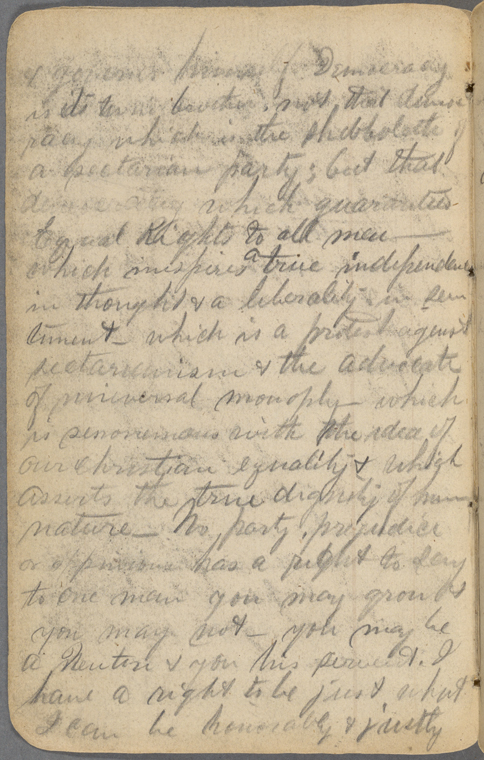 & governs himself. Democracy
is its twin brother, not that democ
racy which is the shibboleth of
a sectarian party; but that
democracy which guarantees
Equal Rights to all men—
which inspires a true independence
in thought & a liberality in sen
timent— which is a protest against
sectarianism & the advocate
of universal monoply— which
is senonemous with the idea of
our christian equality & which
asserts the true dignity of human
nature— No party, prejudice
or opinion has a right to say
to one man you may grow &
you may not— you may be
a Newton & you his servant. I
have a right to be just what
I can be honorably & justly